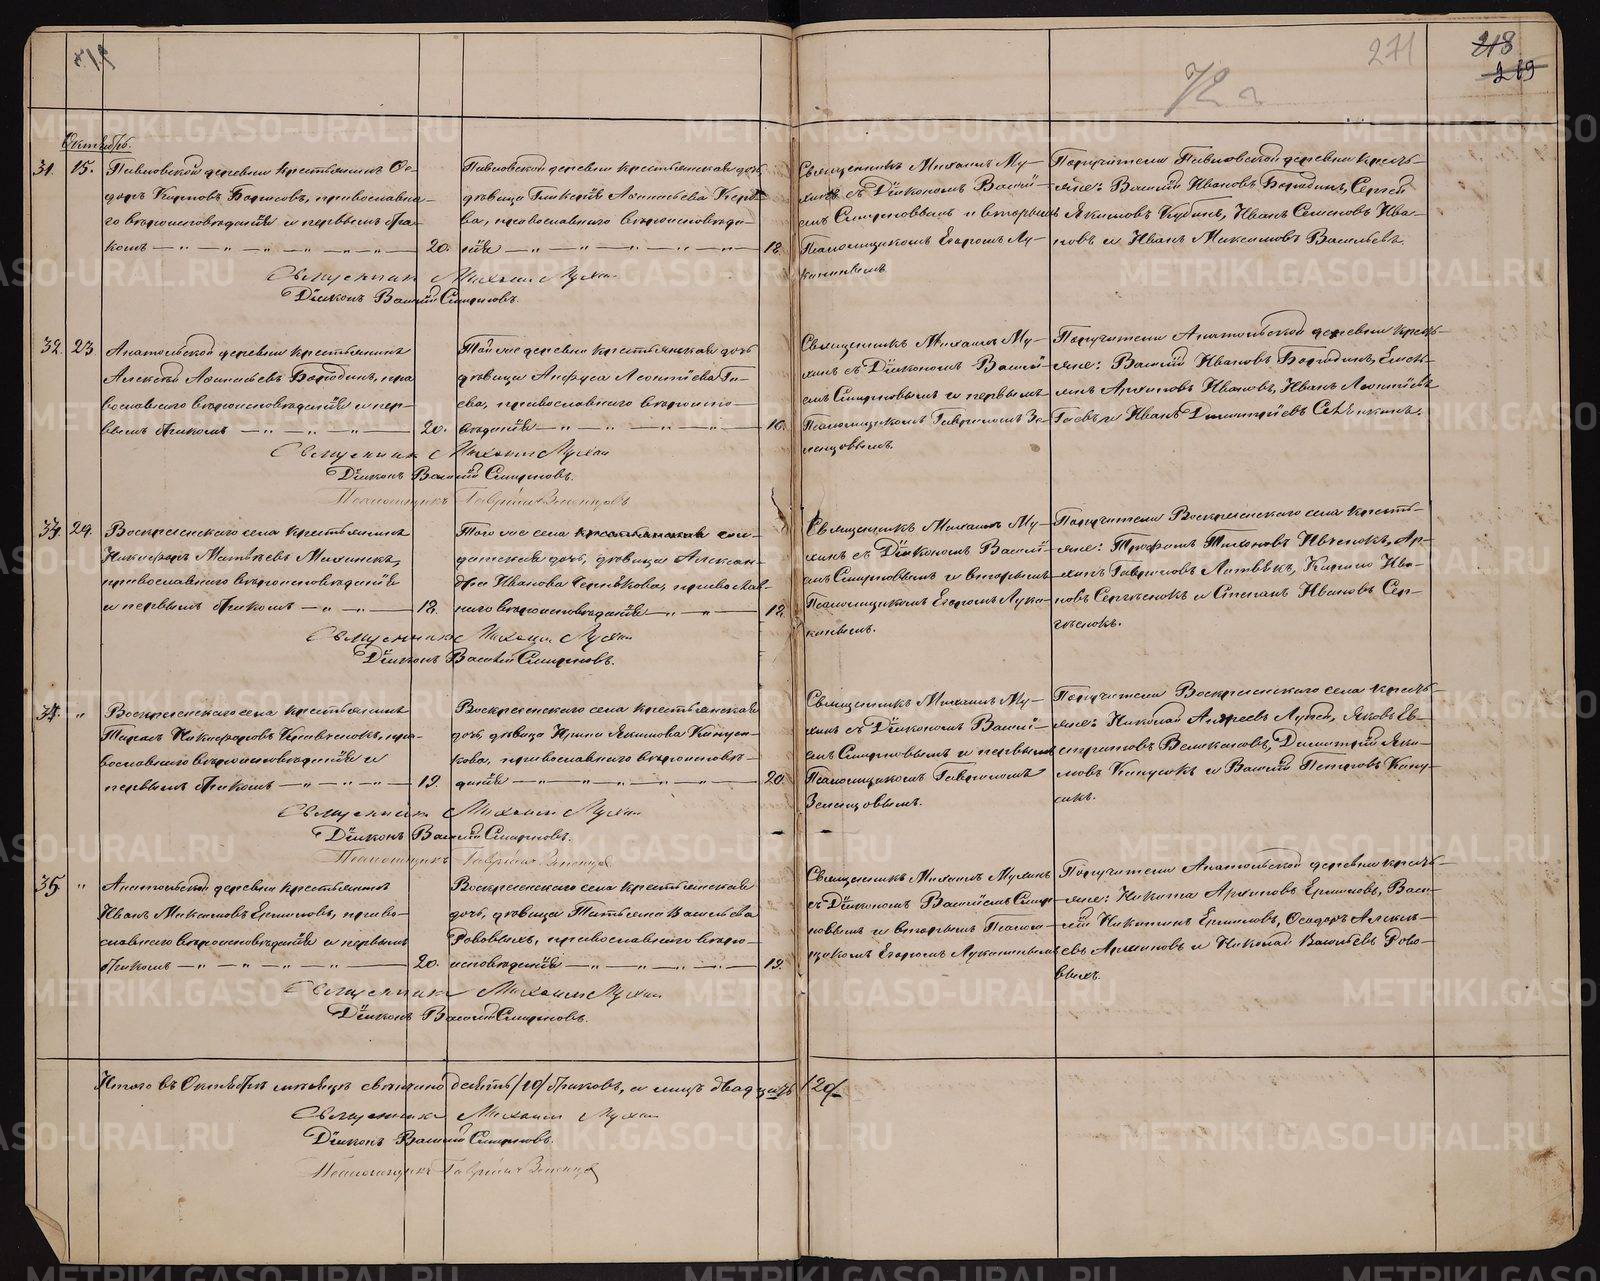 271
218
219
72
Октябрь.
31. 15. Павловской деревни крестьянинъ Ѳе-
доръ Карповъ Борисовъ, православна-
го вѣроисповѣданія и первымъ бра-
комъ 20.
Павловской деревни крестьянская дочь
дѣвица Гликерія Аѳанасьева
ва, православнаго вѣроисповѣда-
нія 18.
Священникъ Михаилъ Му-
хинъ съ Діакономъ Василі-
емъ Смирновымъ и вторымъ
Псаломщикомъ Егоромъ Лу-
канинымъ
Поручители Павловской деревни кресть-
яне: Василій Ивановъ Бородинъ, Сергей
Якимовъ Кубинъ, Иванъ Семеновъ Ива-
новъ и Иванъ Максимовъ Васильевъ.
Священникъ Михаилъ Мухин
Діаконъ Василій Смирновъ.
32. 23. Анатольской деревни крестьянинъ
Алексѣй Аѳанасьевъ Бородинъ, пра-
вославнаго вѣроисповѣданія и пер-
вымъ бракомъ 20.
Той же деревни крестьянская дочь
дѣвица Анфуса Леонтіева Га-
ева, православнаго вѣроиспо-
вѣданія 16.
Священникъ Михаилъ Му-
хинъ съ Діакономъ Василі-
емъ Смирновымъ и первымъ
Псаломщикомъ Гавріиломъ Зе-
ленцовымъ.
Поручители Анатольской деревни кресть-
яне: Василій Ивановъ Бородинъ, Емель-
янъ Архиповъ Ивановъ, Иванъ Леонтіевъ
Гаевъ и Иванъ Димитріевъ
Священникъ Михаилъ Мухин
Діаконъ Василій Смирновъ.
Псаломщикъ Гавріилъ Зеленцовъ
33. 29. Воскресенскаго села крестьянинъ
Никифоръ Матвѣевъ
православнаго вѣроисповѣданія
и первымъ бракомъ 18.
Того же села крестьянская сол-
датская дочь, дѣвица Алексан-
дра Иванова Чернѣкова, православ-
наго вѣроисповѣданія 18.
Священникъ Михаилъ Му-
хинъ съ Діакономъ Василі-
емъ Смирновымъ и вторымъ
Псаломщикомъ Егоромъ Лука-
нинымъ.
Поручители Воскресенскаго села кресть-
яне: Трофимъ Тихоновъ Ар-
хипъ Гавриловъ Кирило Ива-
новъ Сергѣенокъ и Степанъ Ивановъ Сер-
гѣенокъ.
Священникъ Михаилъ Мухин
Діаконъ Василій Смирновъ.
34. " Воскресенскаго села крестьянинъ
Тарасъ Никифоровъ Кравченокъ, пра-
вославнаго вѣроисповѣданія и
первымъ бракомъ 19.
Воскресенскаго села крестьянская
дочь, дѣвица Ирина Якимова Капусн-
кова, православнаго вѣроисповѣ-
данія 20.
Священникъ Михаилъ Му-
хинъ съ Діакономъ Василі-
емъ Смирновымъ и первымъ
Псаломщикомъ Гавріиломъ
Зеленцовымъ.
Поручители Воскресенскаго села кресть-
яне: Николай Андреевъ Яковъ Ев-
стратовъ Великасовъ, Димитрій Яки-
мовъ Капуснкъ и Василій Петровъ Капу-
снкъ.
Священникъ Михаилъ Мухин
Діаконъ Василій Смирновъ.
Псаломщикъ Гавріилъ Зеленцовъ
35. " Анатольской деревни крестьянинъ
Иванъ Максимовъ Ермиловъ, право-
славнаго вѣроисповѣданія и первымъ
бракомъ 20.
Воскресенскаго села крестьянская
дочь, дѣвица Татьяна Васильева
Рововыхъ, православнаго вѣро-
исповѣданія 19.
Священникъ Михаилъ Мухинъ
съ Діакономъ Василіемъ Смир-
новымъ и вторымъ Псалом-
щикомъ Егоромъ Луканинымъ
Поручители Анатольской деревни кресть-
яне: Никита Архиповъ Ермиловъ, Васи-
лій Никитинъ Ермиловъ, Ѳеодоръ Алексѣ-
евъ Архиповъ и Николай Васильевъ Рово-
выхъ.
Священникъ Михаилъ Мухин
Діаконъ Василій Смирновъ.
Итого въ Октябрѣ мѣсяцѣ свѣнчано десять /10/ браковъ, а лицъ двадцать /20/
Священникъ Михаилъ Мухин
Діаконъ Василій Смирновъ.
Псаломщикъ Гавріилъ Зеленцовъ
METRIKI.GASO-URAL.RU